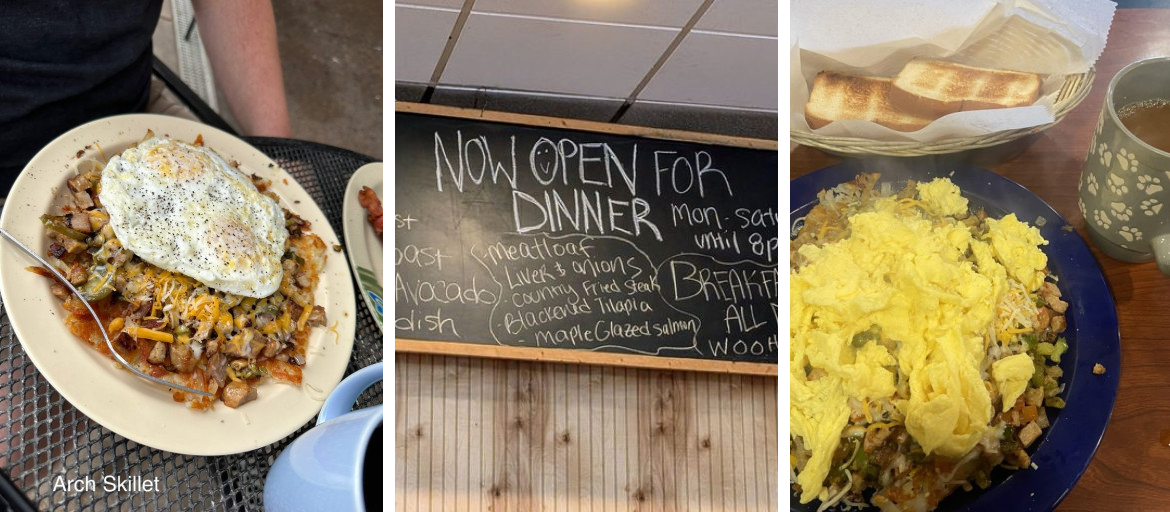 Arch Skillet
NOW OPEN FOR
DINNER
Mon. Satu
until 8p
st
oast
Avocado
dish
meatloaf
Liver & onions
Country Fried Steak
Blackened Tilapia
- maple Glazed salmon
BREAKFA
ALL D
WOOH